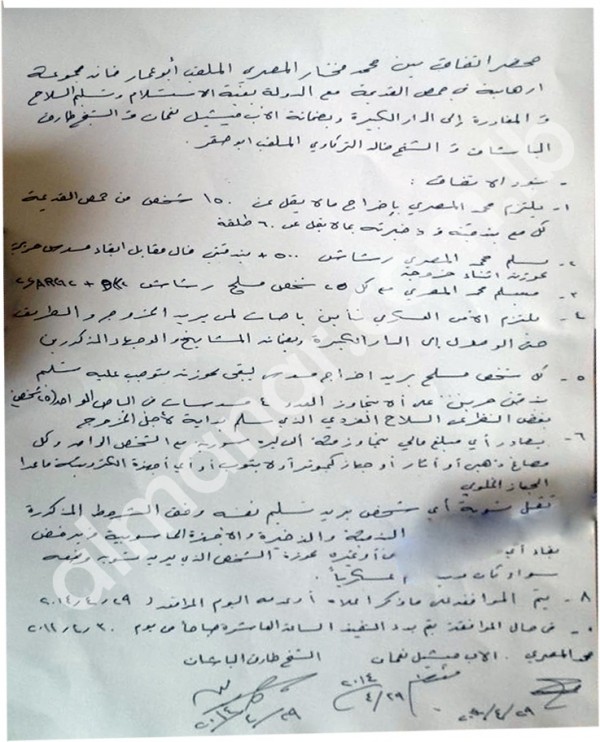 محضر اتفاق بين محمد مختار المصري الملقب أبو عمار قائد مجموعة
ارهابية في حمص القديمة مع الدولة بغية الاستسلام وتسليم السلاح
و المغادرة إلى الدار الكبيرة وبضمانة الاب ميشيل نعمان و الشيخ طارق
البارشان و الشيخ خالد التركاوي الملقب ابو صقر.
- بنود الاتفاق :
١- يلتزم محمد المصري بإخراج مالا يقل عن ١٥٠ شخص من حمص القديمة
كل مع بندقية و ذخيرته بمالا يقل عن ٦٠ طلقة
٢- يسلم محمد المصري رشاش ٥٠٠ + بندقيتي فال مقابل ابقاء مسدس حربي
بحوزته اثناء خروجه
٣- يسلم محمد المصري مع كل ٢٥ شخص مسلح رشاش
٤- يلتزم الأمن العسكري تأمين باصات لمن يريد الخروج و الطريق
حتى الوصول إلى الدار الكبيرة وبضمانة المشايخ و الوجهاء المذكورين
٥- كل شخص مسلح يريد اخراج مسدس يبقى بحوزته متوجب عليه تسليم
بندقيتين حربيتين على ألا يتجاوز العدد ٤ مسدسات في الباص الواحد
بغض النظر عن السلاح الفردي الذي سلم بداية لأجل الخروج
٦- يصادر أي مبلغ مالي يتجاوز مئة ألف ليرة سورية مع الشخص الواحد وكل
مصاغ ذهبي أو آثار أو جهاز كمبيوتر أو لابتوب أو أي أجهزة الكترونية ماعدا
الجهاز الخليوي
تقبل تسوية أي شخص يريد تسليم نفسه وفق الشروط المذكورة
الذخيرة والاجهزة الحاسوبية ويرفض
بقاء أي من أو غيره بحوزة الشخص الذي يريد تسوية وضعه
سواء كان
٨- يتم الموافقة على ماذكر اعلاه أو عدمه اليوم الموافق لـ ٢٩/٤/٢٠١٤
في حال الموافقة يتم بدء التنفيذ الساعة العاشرة صباحاً من يوم ٣٠/٤/٢٠١٤
محمد المصري . الاب ميشيل نعمان الشيخ طارق البارشان
٢٠١٤
٤/٢٩
٢٩/٤/٢٠١٤
almanar.com.lb